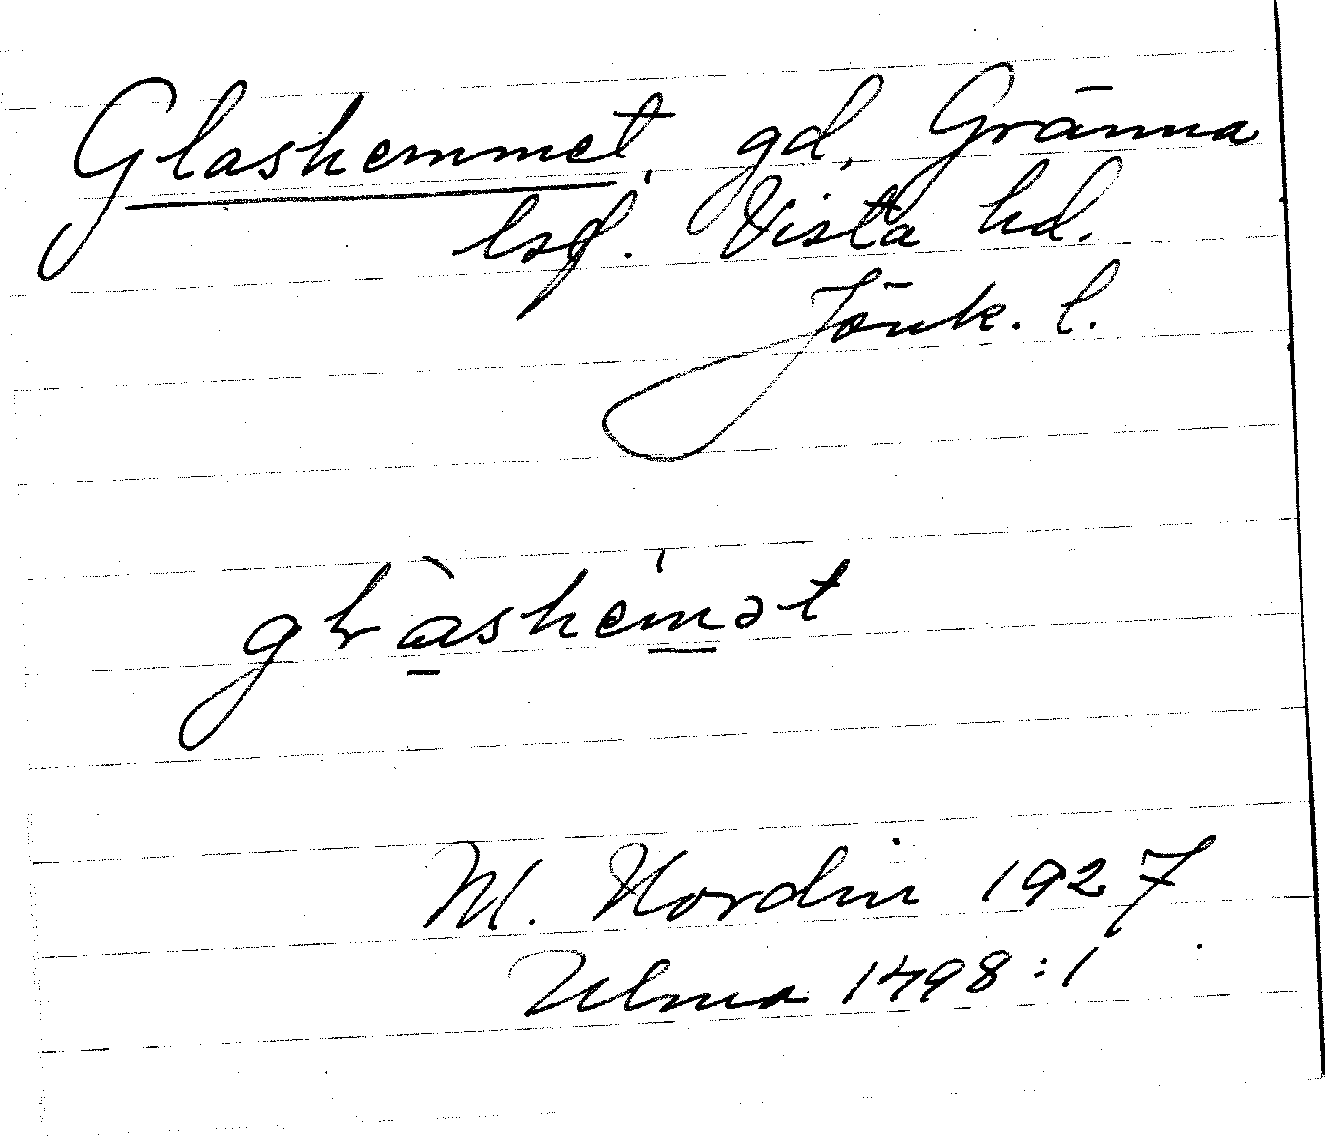 Glashemmet, gd, Gränna
lsf. Vista hd.
Jönk. l.
glàshemət
M. Nordin 1927
Ulma 1498:1